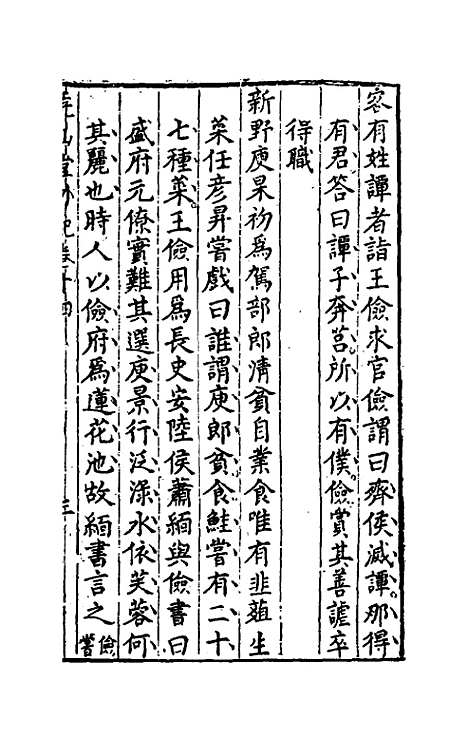 客有姓譚者詣王儉求官儉謂曰齊侯滅譚那得
有君答曰譚子奔莒所以有僕儉賞其善謔卒
得職
新野庾杲初為駕部郎清貧自業食唯有韭葅生
菜任彥昇嘗戲曰誰謂庾郎貧食鮭嘗有二十
七種菜王儉用為長史安陸侯蕭緬與儉書曰
盛府元僚實難其選庾景行泛淥水依芙蓉何
其麗也時人以儉府為蓮花池故緬書言之儉嘗
三